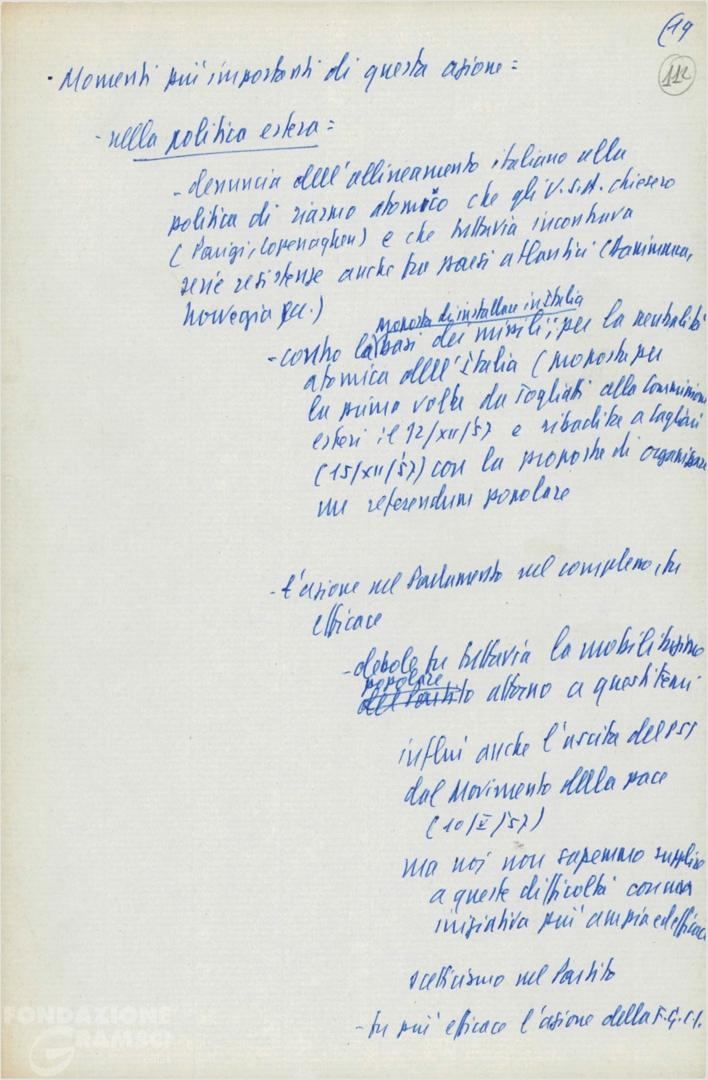 (19
112
· Momenti più importanti di questa azione =
- nella politica estera =
- denuncia dell'allineamento italiano alla
politica di riarmo atomico che gli U.S.A. chiesero
(Parigi, Copenaghen) e che tuttavia incontrava
serie resistenze anche tra paesi atlantici (Danimarca,
Norvegia ecc.)
proposta di installare in Italia
- contro la basi dei missili; per la neutralità
atomica dell'Italia (proposta per
la prima volta da Togliatti alla Commissione
esteri il 12/XII/57 e ribadita a Cagliari
(15/XII/57) con la proposta di organizzare
un referendum popolare
- L'azione nel Parlamento nel complesso, fu
efficace
- debole fu tuttavia la mobilitazione
popolare
del Partito attorno a questi temi
influì anche l'uscita del PSI
dal Movimento della pace
(10/X/57)
ma noi non sapemmo supplire
a queste difficoltà con una
iniziativa più ampia ed efficace
scetticismo nel Partito
- fu più efficace l'azione della F.G.C.I.
FONDAZIONE
GRAMSCI